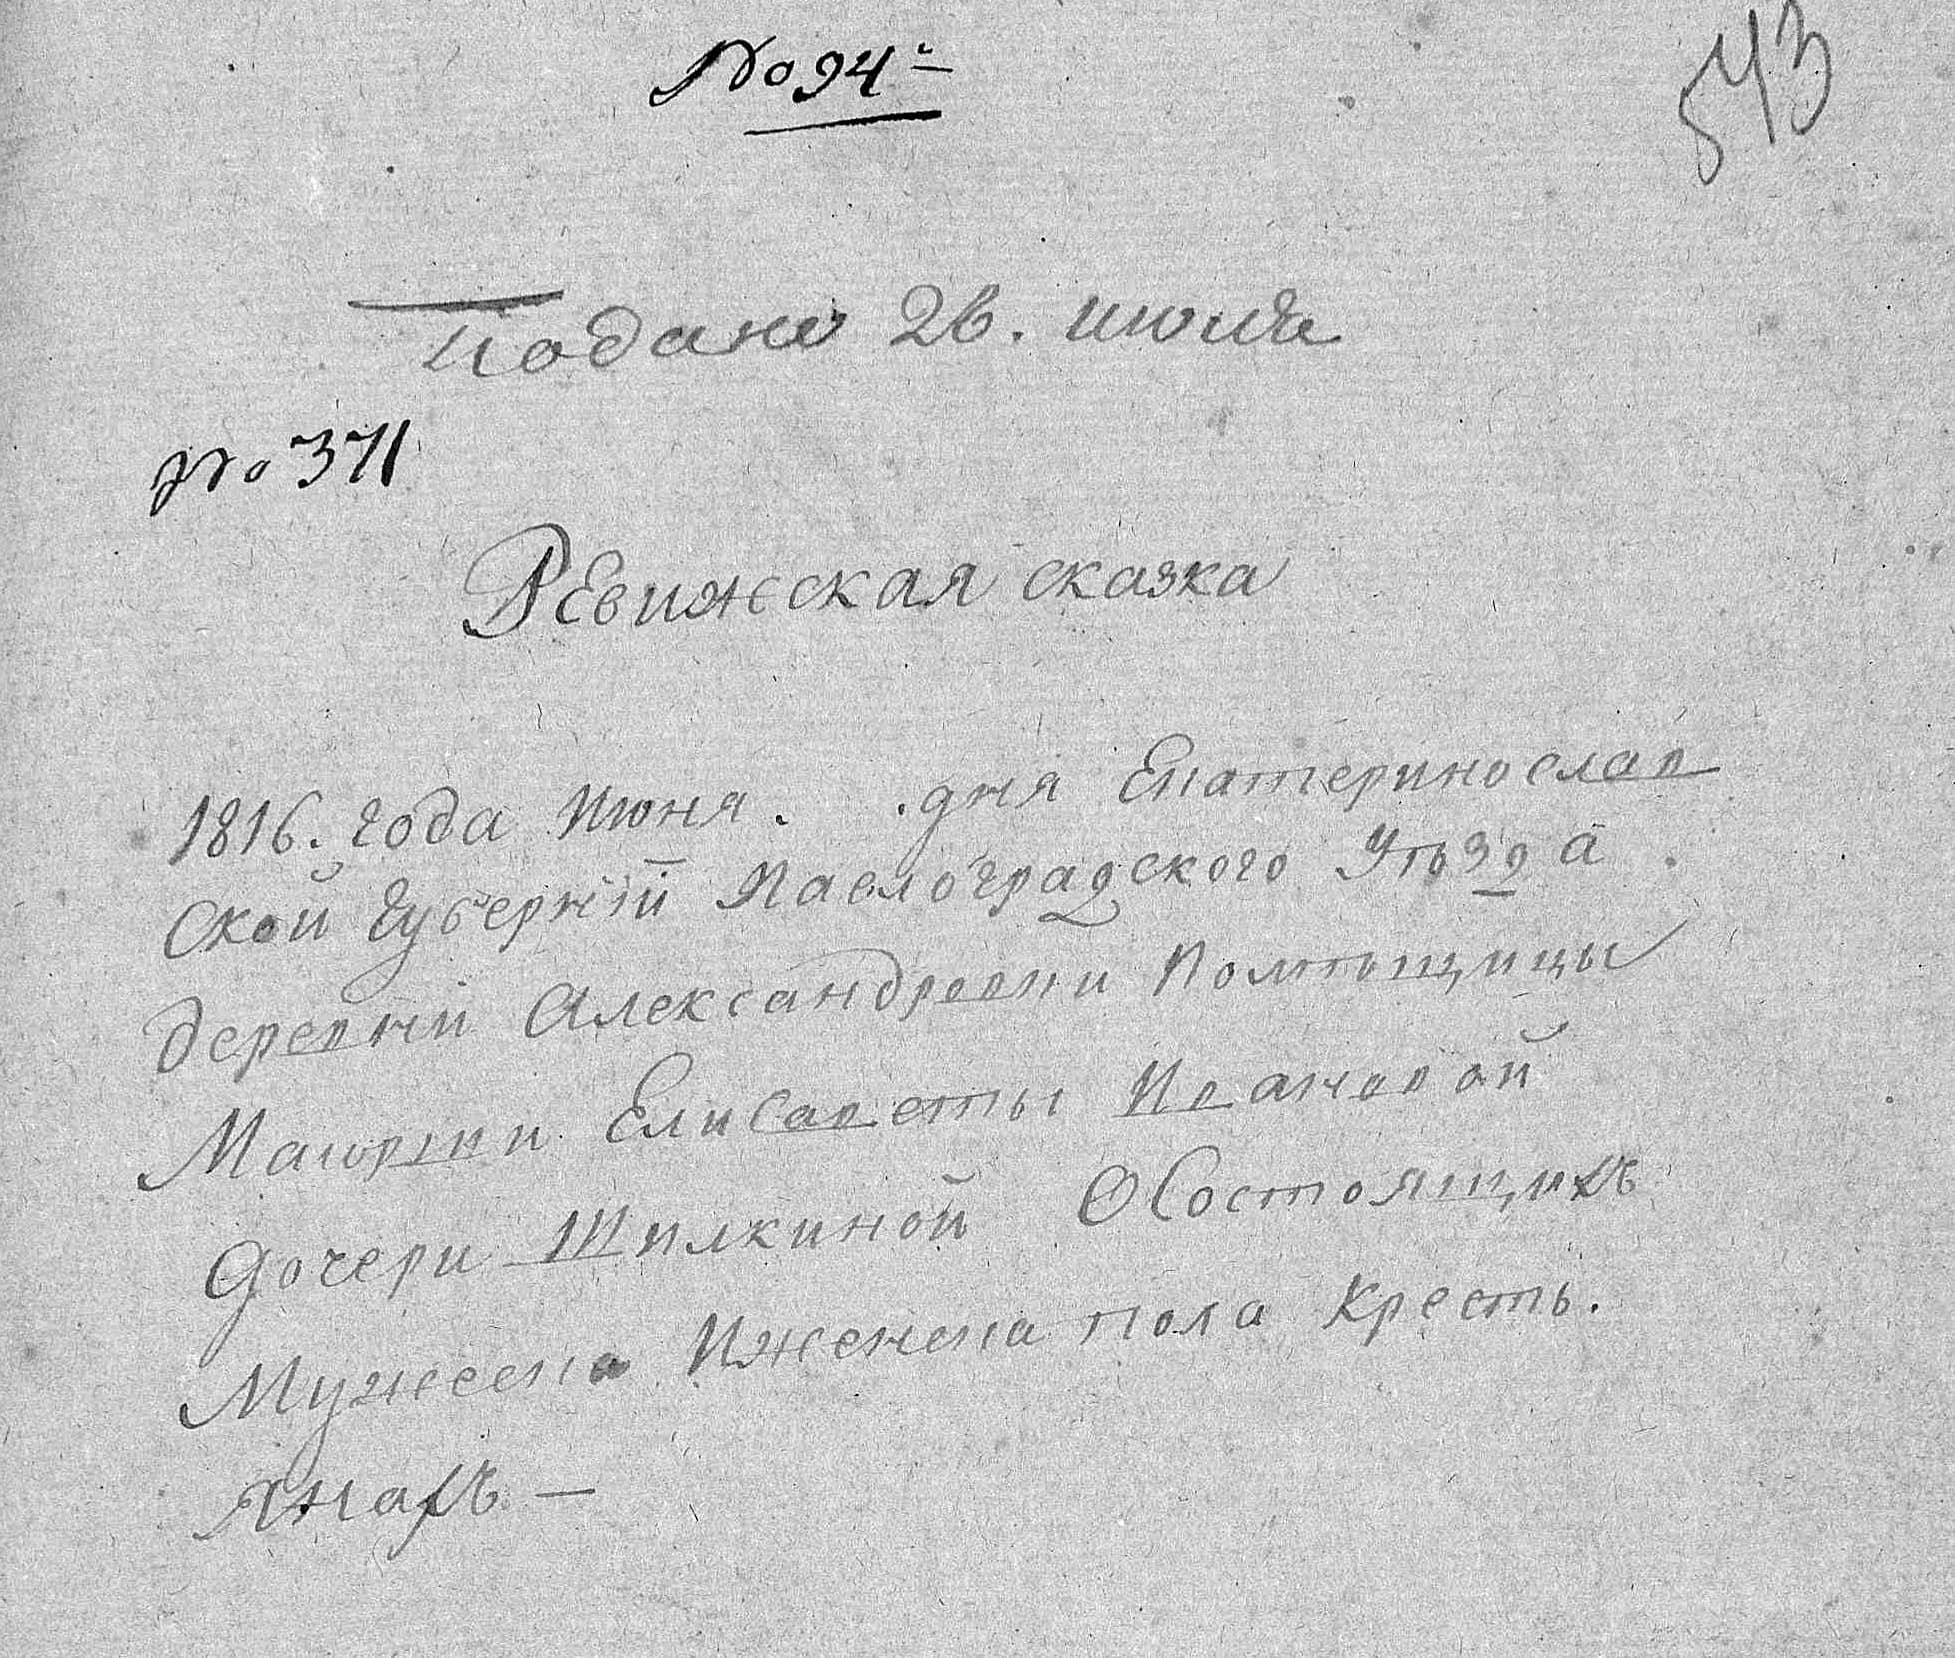 № 94й
543
Подано 26. июля
№ 371
Ревижская сказка
1816. года Июня . . дня Екатеринослав
ской губерний Павлоградского Уѣзда
деревни Александровки Помѣщицы
Маіорши Елисаветы Ивановой
дочери Шилкиной О Состоящихъ
Мужеска Иженска пола Кресть.
янахъ —